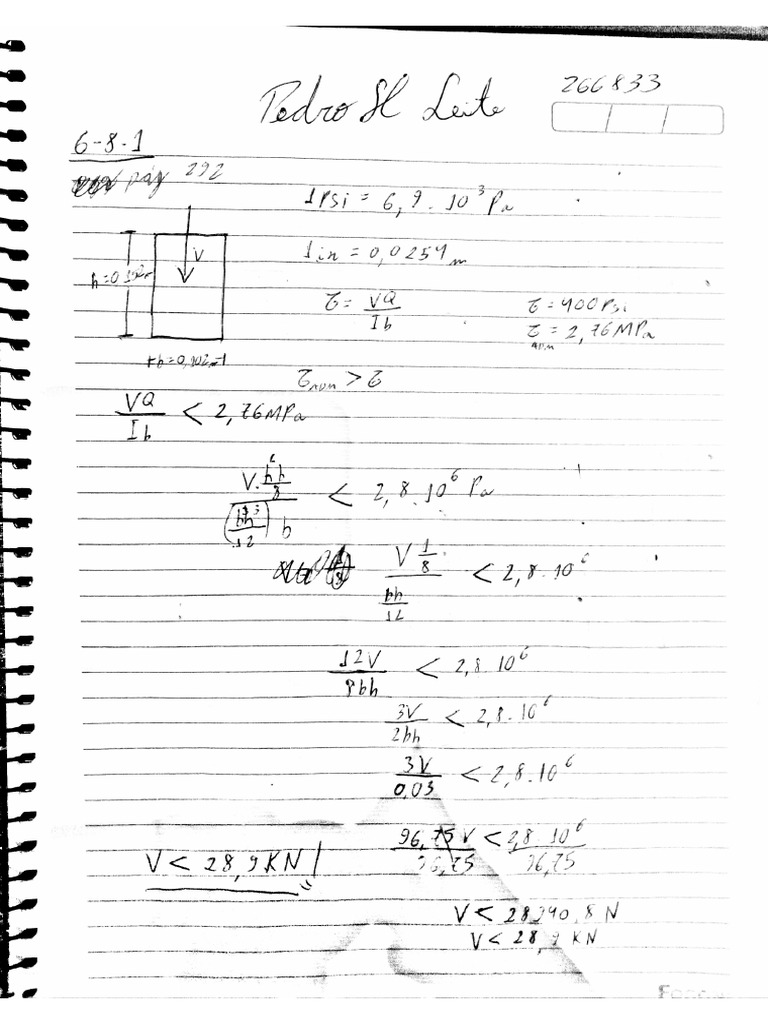 Pedro H Leite 266833
6-8.1
pág 292
1Psi = 6,9.10³ Pa
1in = 0,0254 m
V
τ = VQ/Ib
τ = 400Psi
τ ADM = 2,76MPa
τ ADM > τ
VQ/Ib < 2,76MPa
< 2,8.10⁶ Pa
V 1/8 / bh/12 < 2,8.10⁶
12V/8bh < 2,8.10⁶
3V/2bh < 2,8.10⁶
3V/0,03 < 2,8.10⁶
96,75 V/96,75 < 2,8.10⁶/96,75
V < 28,9KN
V < 28940,8 N
V < 28,9 KN